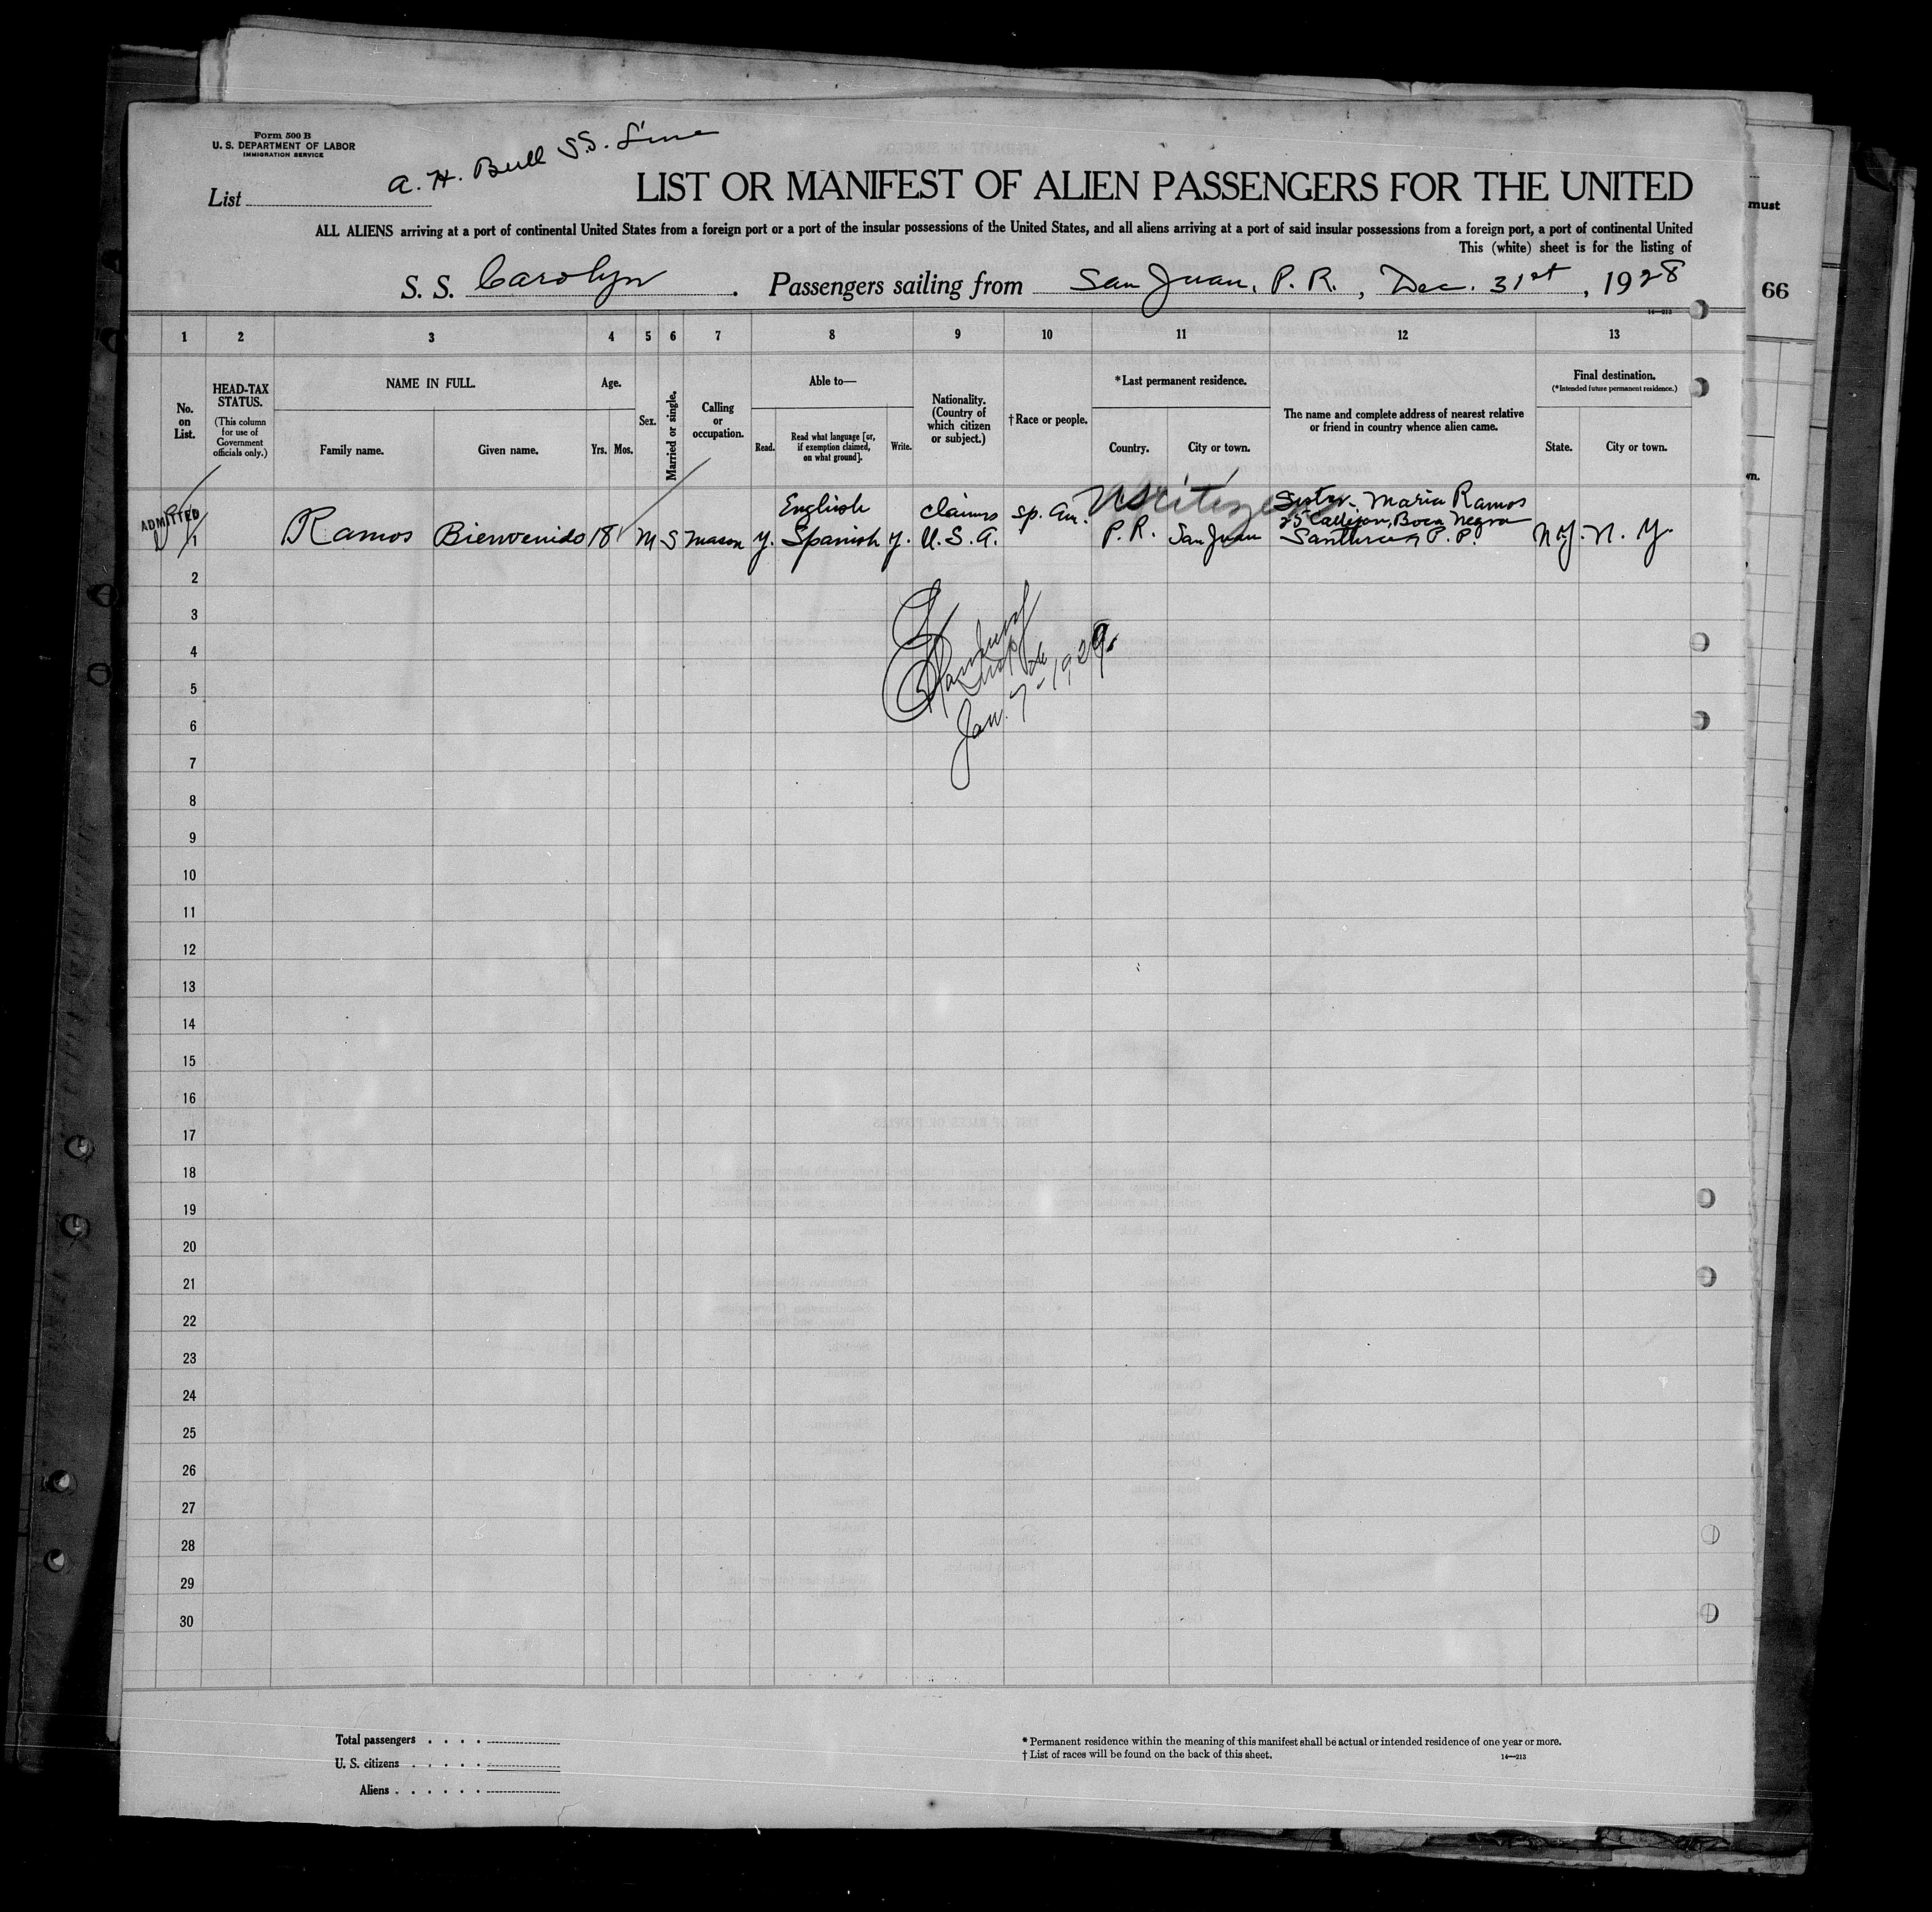 Form 500 B
U. S. DEPARTMENT OF LABOR
IMMIGRATION SERVICE
A. H. Bull S.S. Line
List
LIST OR MANIFEST OF ALIEN PASSENGERS FOR THE UNITED
must
ALL ALIENS arriving at a port of continental United States from a foreign port or a port of the insular possessions of the United States, and all aliens arriving at a port of said insular possessions from a foreign port, a port of continental United
This (white) sheet is for the listing of
S. S. Carolyn . Passengers sailing from San Juan, P. R. , Dec. 31st , 1928
66
14—213
1 2 3 4 5 6 7 8 9 10 11 12 13
No. on List.
HEAD-TAX STATUS.
(This column for use of Government officials only.)
NAME IN FULL.
Family name. Given name.
Age.
Yrs. Mos.
Sex.
Married or single.
Calling or occupation.
Able to—
Read. Read what language [or, if exemption claimed, on what ground]. Write.
Nationality. (Country of which citizen or subject.)
†Race or people.
*Last permanent residence.
Country. City or town.
The name and complete address of nearest relative or friend in country whence alien came.
Final destination.
(*Intended future permanent residence.)
State. City or town.
ADMITTED
English claims Sp. Am. US citizen Sister. Maria Ramos
25 Callejon, Boca Negra
1 Ramos Bienvenido 18 M S Mason y. Spanish y. U. S. A. P. R. San Juan Santurce, P. R. N.Y. N. Y.
2
3
4
5
Jan. 7-1929.
6
7
8
9
10
11
12
13
14
15
16
17
18
19
20
21
22
23
24
25
26
27
28
29
30
Total passengers . . . .
U. S. citizens . . . . .
Aliens . . . . . .
* Permanent residence within the meaning of this manifest shall be actual or intended residence of one year or more.
† List of races will be found on the back of this sheet.
14—213